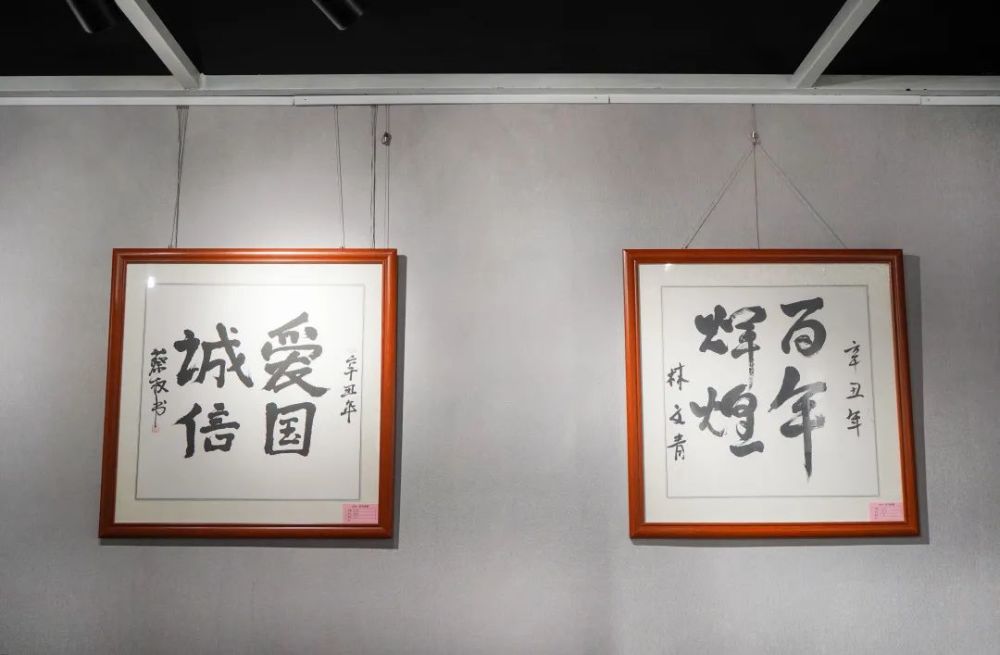 辛丑年
爱国
誠信
蔡
书
辛丑年
百年
煇煌
林文青